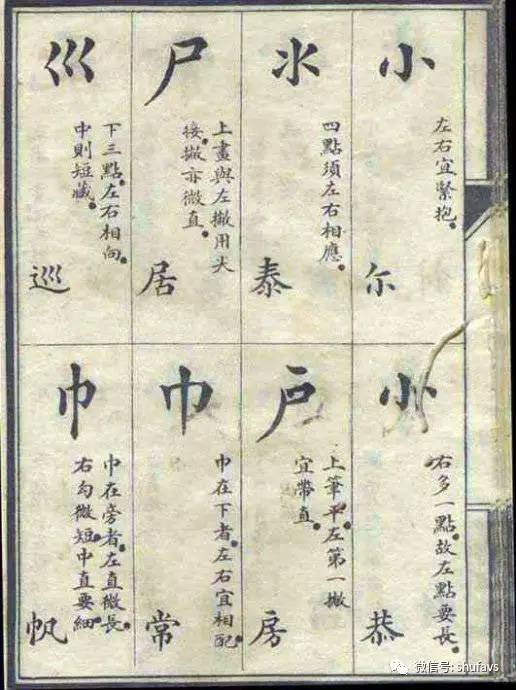 小
左右宜緊抱
尔
氺
四點須左右相應
泰
尸
上畫與左撇用尖
接撇亦微直
居
巛
下三點左右相向
中則短藏
巡
㣺
右多一點故左點要長
恭
戶
上筆平左第一撇
宜帶直
房
巾
巾在下者左右宜相配
常
巾
巾在旁者左直微長
右勾微短中直要細
帆
微信号: shufavs